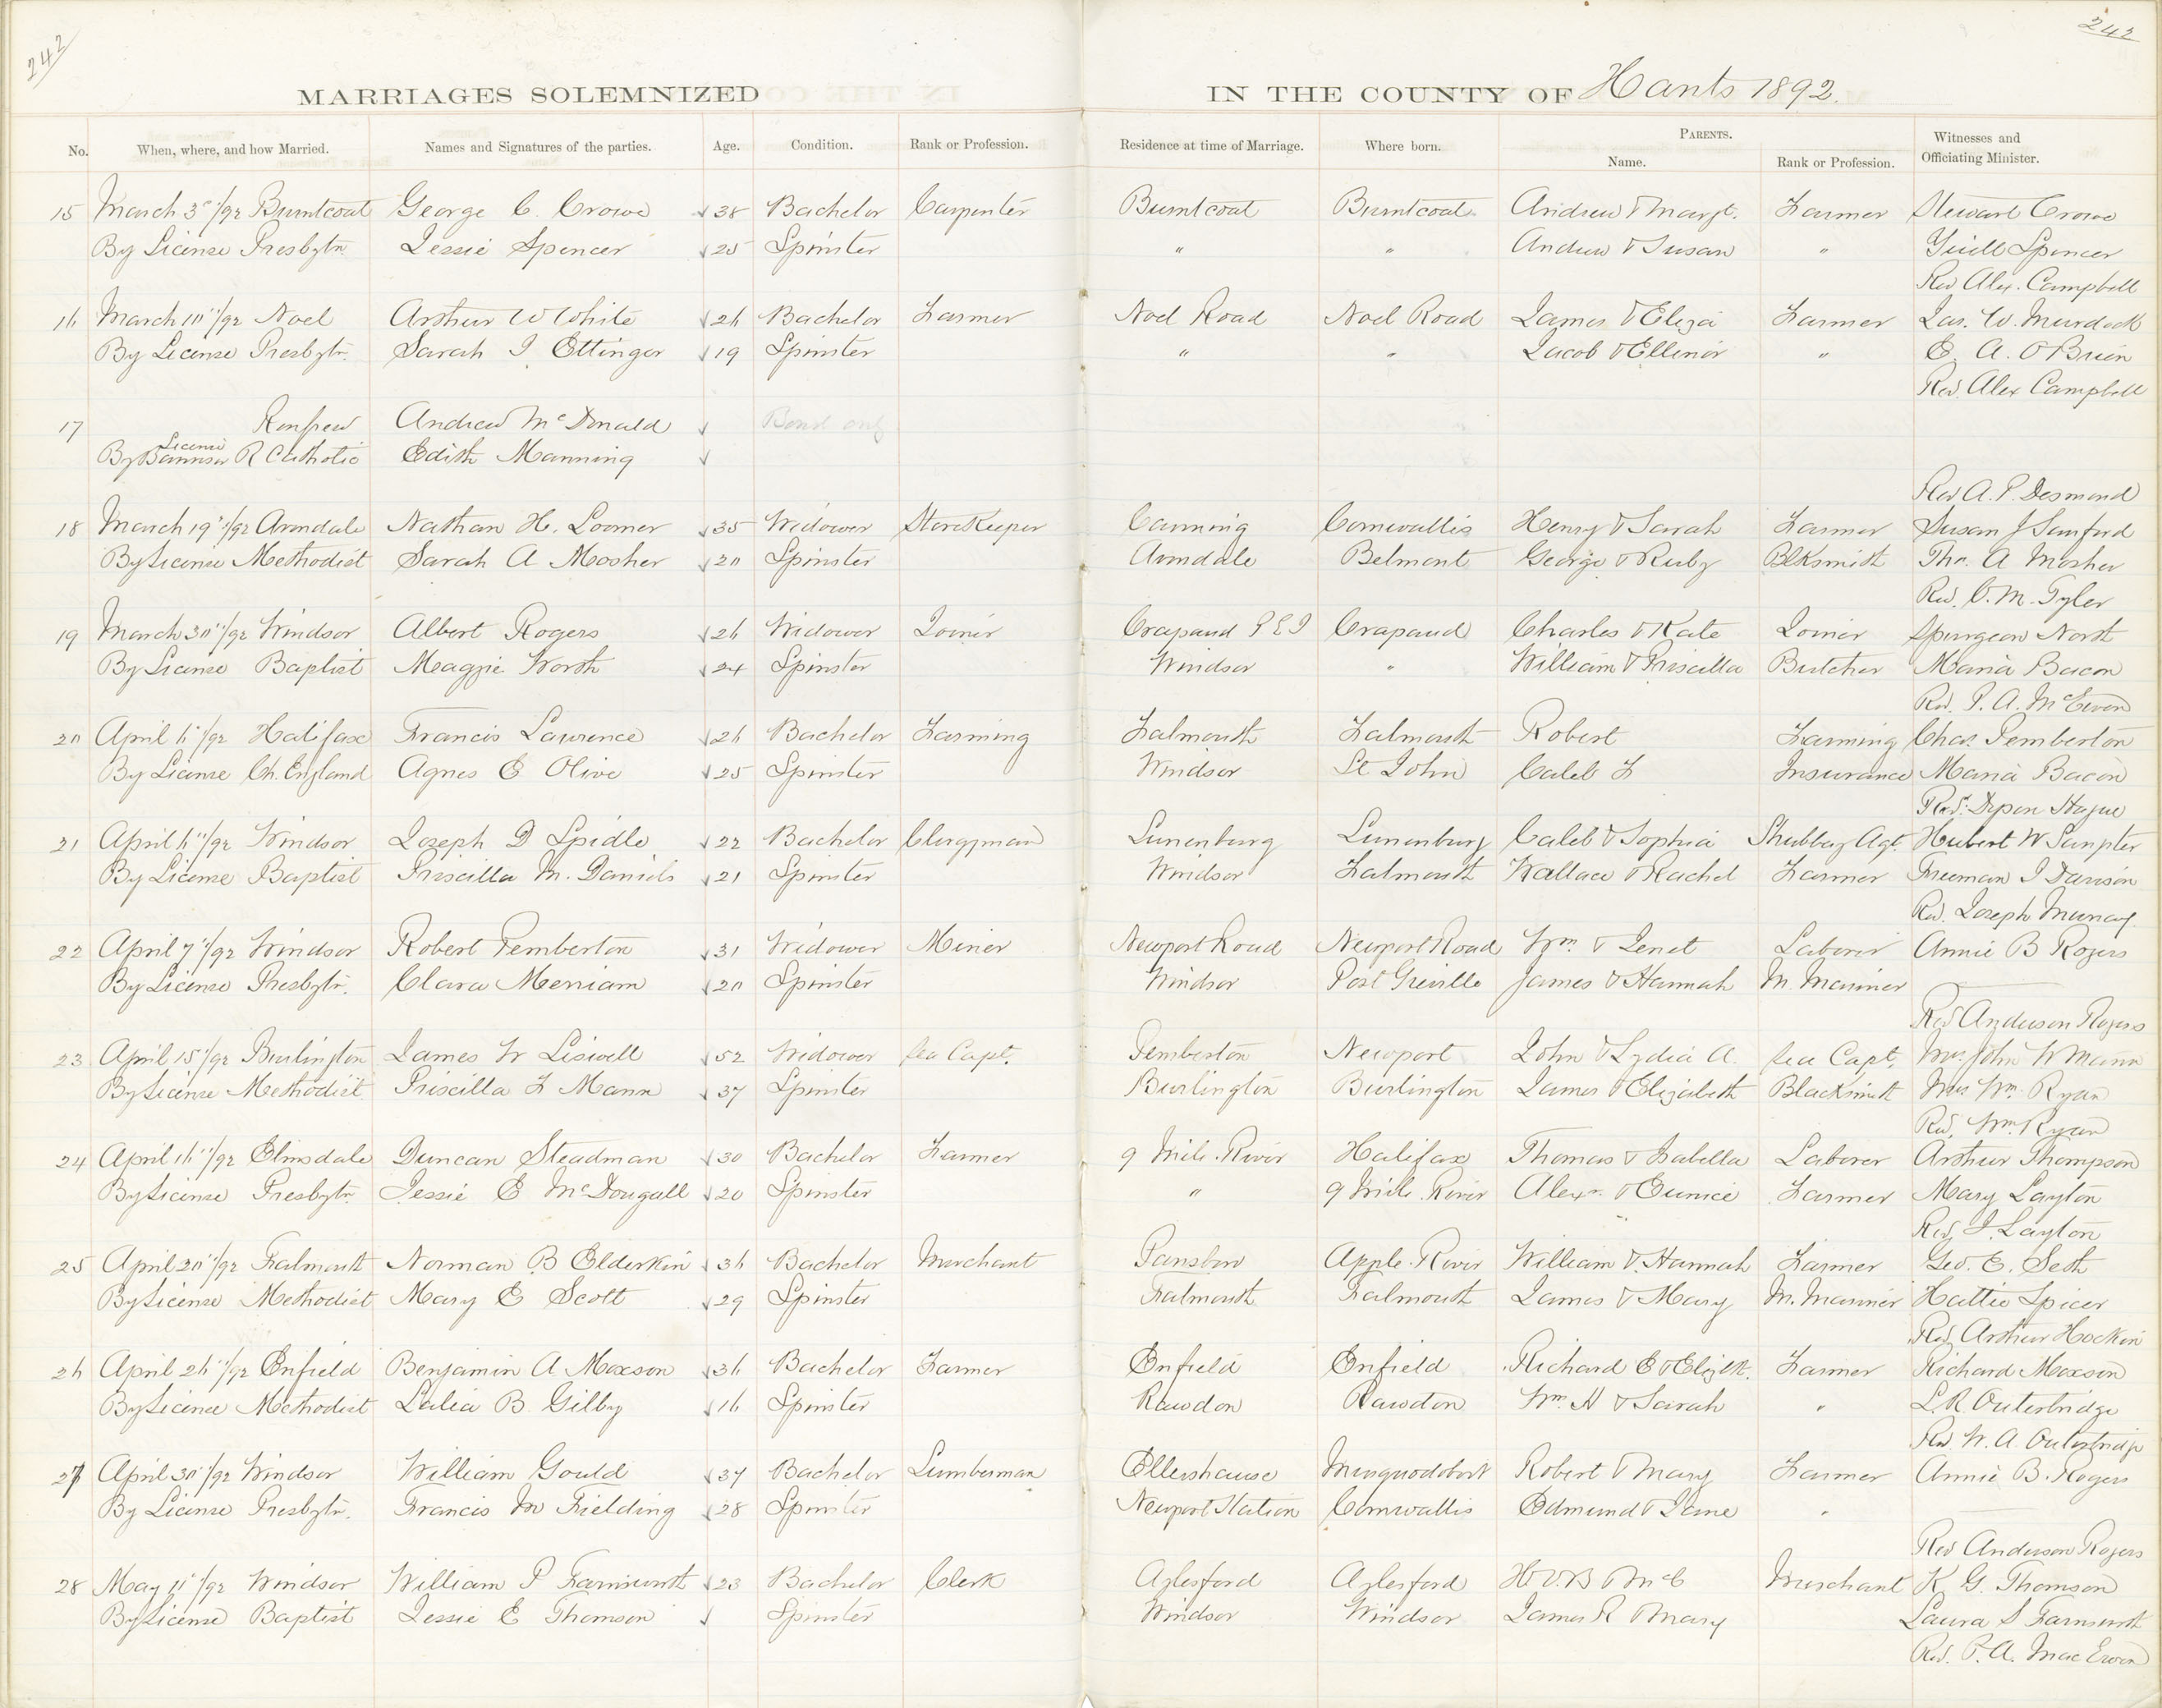 242
242
MARRIAGES SOLEMNIZED IN THE COUNTY OF Hants 1892.
No. When, where, and how Married. Names and Signatures of the parties. Age. Condition. Rank or Profession. Residence at time of Marriage. Where born. PARENTS. Name. Rank or Profession. Witnesses and Officiating Minister.
15 March 3"/92 Burntcoat George C. Crowe 38 Bachelor Carpenter Burntcoat Burntcoat Andrew & Margt. Farmer Stewart Crowe
By License Presbytn. Jessie Spencer 25 Spinster " " Andrew & Susan " Spencer
Rev Alex. Campbell
16 March 10"/92 Noel Arthur W White 26 Bachelor Farmer Noel Road Noel Road James & Eliza Farmer Jas. W. Murdock
By License Presbytn. Sarah I Ettinger 19 Spinster " " Jacob & Ellenor " E. A. O'Brien
Rev. Alex Campbell
17 Renfrew Andrew McDonald Bond only
By Banns or License R Catholic Edith Manning
Rev A. P. Desmond
18 March 19"/92 Avondale Nathan H. Loomer 35 Widower StoreKeeper Canning Cornwallis Henry & Sarah Farmer Susan J Sanford
By License Methodist Sarah A Mosher 20 Spinster Avondale Belmont George & Ruby BlKsmith Thos. A Mosher
Rev. C. M. Tyler
19 March 30"/92 Windsor Albert Rogers 26 Widower Joiner Crapaud P E I Crapaud Charles & Kate Joiner Spurgeon North
By License Baptist Maggie North 24 Spinster Windsor " William & Priscilla Butcher Maria Bacon
Rev. P. A. McEwen
20 April 6"/92 Halifax Francis Lawrence 26 Bachelor Farming Falmouth Falmouth Robert Farming Chas. Pemberton
By License Ch. England Agnes E Olive 25 Spinster Windsor St John Caleb F Insurance Maria Bacon
Revd. Dyson Hague
21 April 6"/92 Windsor Joseph D Spidle 22 Bachelor Clergyman Lunenburg Lunenburg Caleb & Sophia Shubbery Agt. Hubert W
By License Baptist Priscilla M. Daniels 21 Spinster Windsor Falmouth Wallace & Rachel Farmer Freeman I Davison
Rev. Joseph Murray
22 April 7"/92 Windsor Robert Pemberton 31 Widower Miner Newport Road Newport Road Wm & Jenet Laborer Annie B Rogers
By License Presbytn. Clara Merriam 20 Spinster Windsor Port Greville James & Hannah M. Mariner
Rev Anderson Rogers
23 April 15"/92 Burlington James W Liswell 52 Widower Sea Capt. Pemberton Newport John & Lydia A. Sea Capt. Mrs John W Mann
By License Methodist Priscilla F Mann 37 Spinster Burlington Burlington James & Elizabeth Blacksmith Mrs Wm Ryan
Rev. Wm Ryan
24 April 16"/92 Elmsdale Duncan Steadman 30 Bachelor Farmer 9 Mile River Halifax Thomas & Isabella Laborer Arthur Thompson
By License Presbytn. Jessie E McDougall 20 Spinster " 9 Mile River Alexr. & Eunice Farmer Mary Layton
Rev J. Layton
25 April 20"/92 Falmouth Norman B Elderkin 36 Bachelor Merchant Apple River William & Hannah Farmer Geo. E. Seth
By License Methodist Mary E Scott 29 Spinster Falmouth Falmouth James & Mary M. Mariner Hattie Spicer
Rev. Arthur Hockin
26 April 26"/92 Enfield Benjamin A Moxson 36 Bachelor Farmer Enfield Enfield Richard E & Elizth. Farmer Richard Moxson
By License Methodist Lalia B Gilby 16 Spinster Rawdon Rawdon Wm H & Sarah " L.R. Outerbridge
Rev. W. A. Outerbridge
27 April 30"/92 Windsor William Gould 37 Bachelor Lumberman Ellershause Musquodoboit Robert & Mary Farmer Annie B. Rogers
By License Presbytn. Francis M Fielding 28 Spinster Newport Station Cornwallis Edmund & Jane "
Rev Anderson Rogers
28 May 11"/92 Windsor William P Farnsworth 23 Bachelor Clerk Aylesford Aylesford Merchant K. G. Thomson
By License Baptist Jessie E Thomson Spinster Windsor Windsor James R Mary Laura S Farnsworth
Rev. P. A. MacEwen